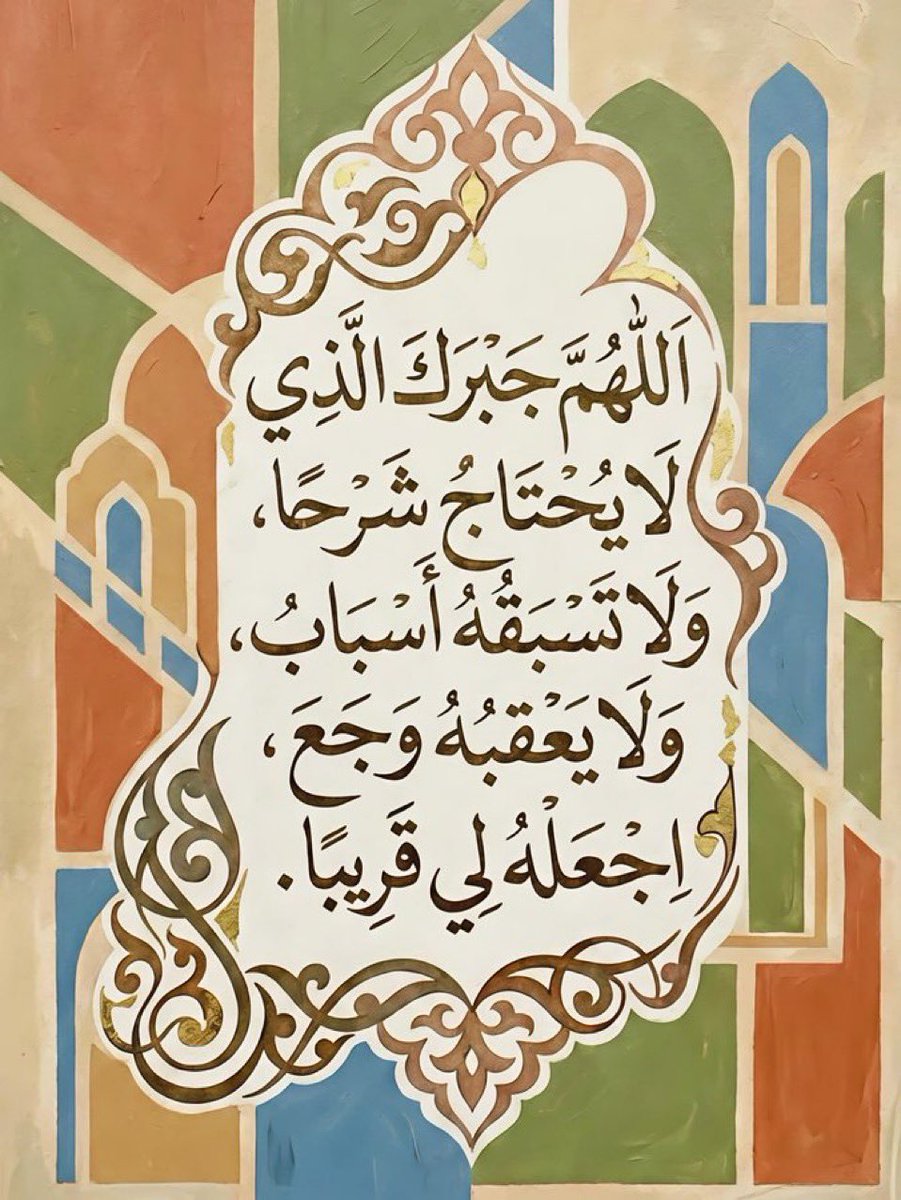 اَللّٰهُمَّ جَبْرَكَ الَّذِي
لَا يُحْتَاجُ شَرْحًا،
وَلَا تَسْبَقُهُ أَسْبَابُ،
وَلَا يَعْقبُهُ وَجَعَ،
اِجْعَلْهُ لِي قَرِيبًا.